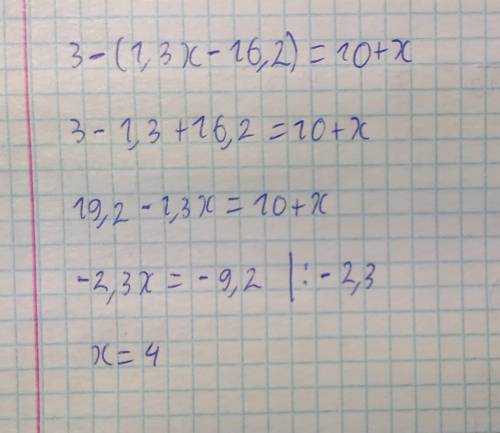 3-(1,3x-16,2)=10+x
3-1,3+16,2=10+x
19,2-1,3x=10+x
-2,3x=-9,2 |:-2,3
x=4